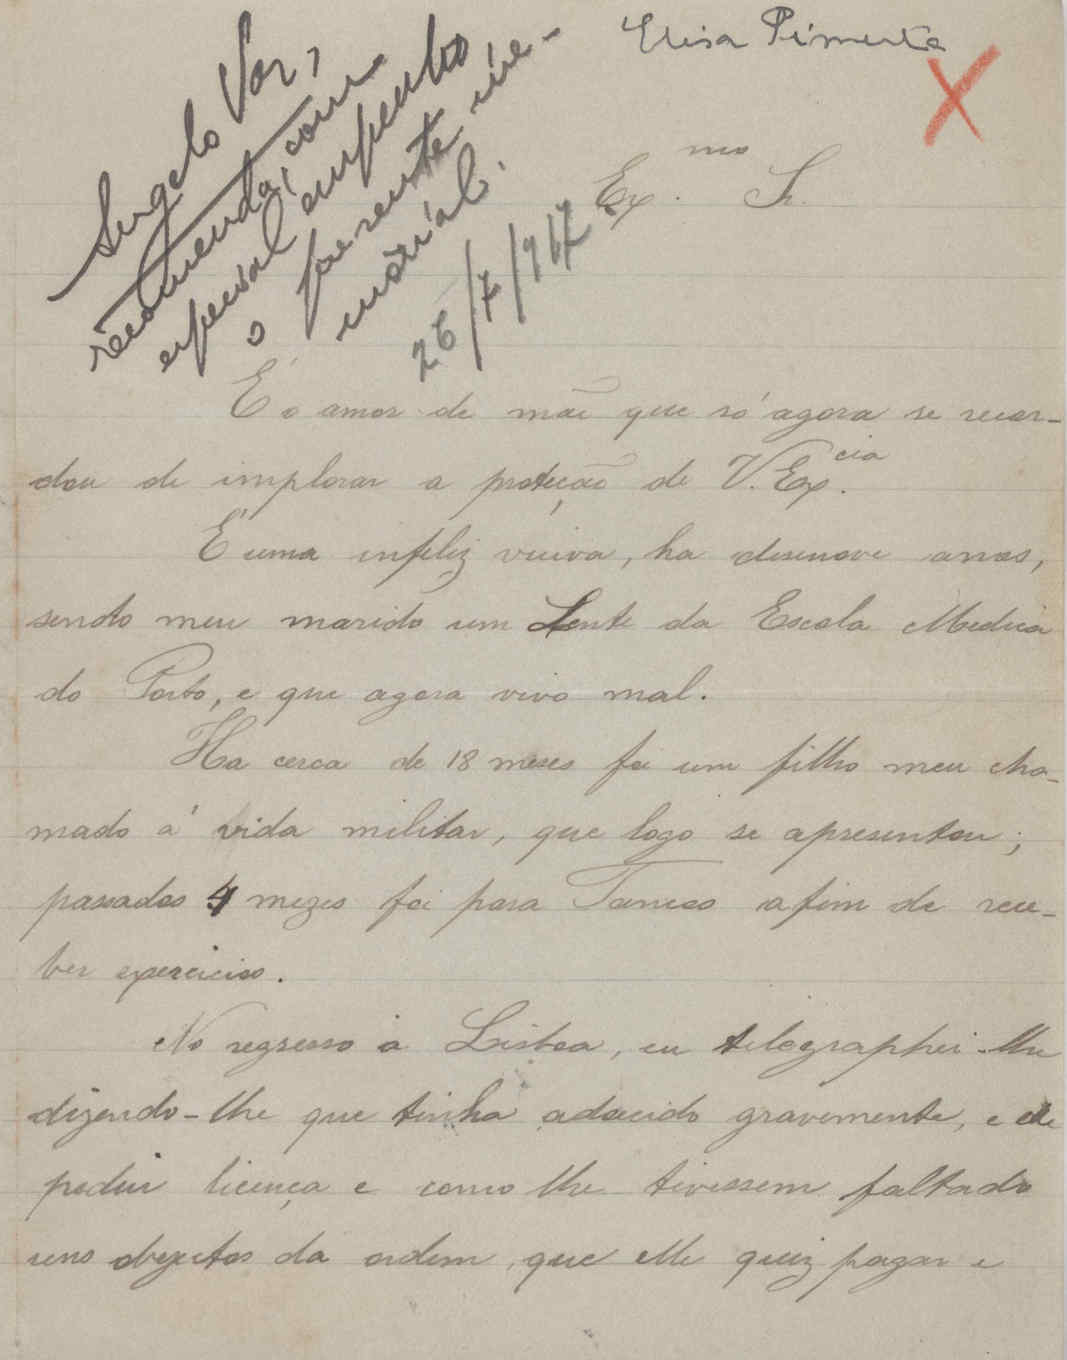 Elisa Pimenta
Angelo Vaz,
recomenda, com
especial empenho
o presente me-
morial.
26/7/917
Ex.mo Sr.
É o amor de mãe que só agora se recor-
dou de implorar a proteção de V. Ex.cia
É uma infeliz viuva, ha desenove anos,
sendo meu marido um Lente da Escola Medica
do Porto, e que agora vivo mal.
Ha cerca de 18 meses foi um filho meu cha-
mado á vida militar, que logo se apresentou;
passados 4 mezes foi para Tancos afim de rece-
ber exercicios.
No regresso a Lisboa, eu telegraphei-lhe
dizendo-lhe que tinha adoecido gravemente, e elle
pediu licença e como lhe tivessem faltado
uns objectos da ordem, que elle quiz pagar e